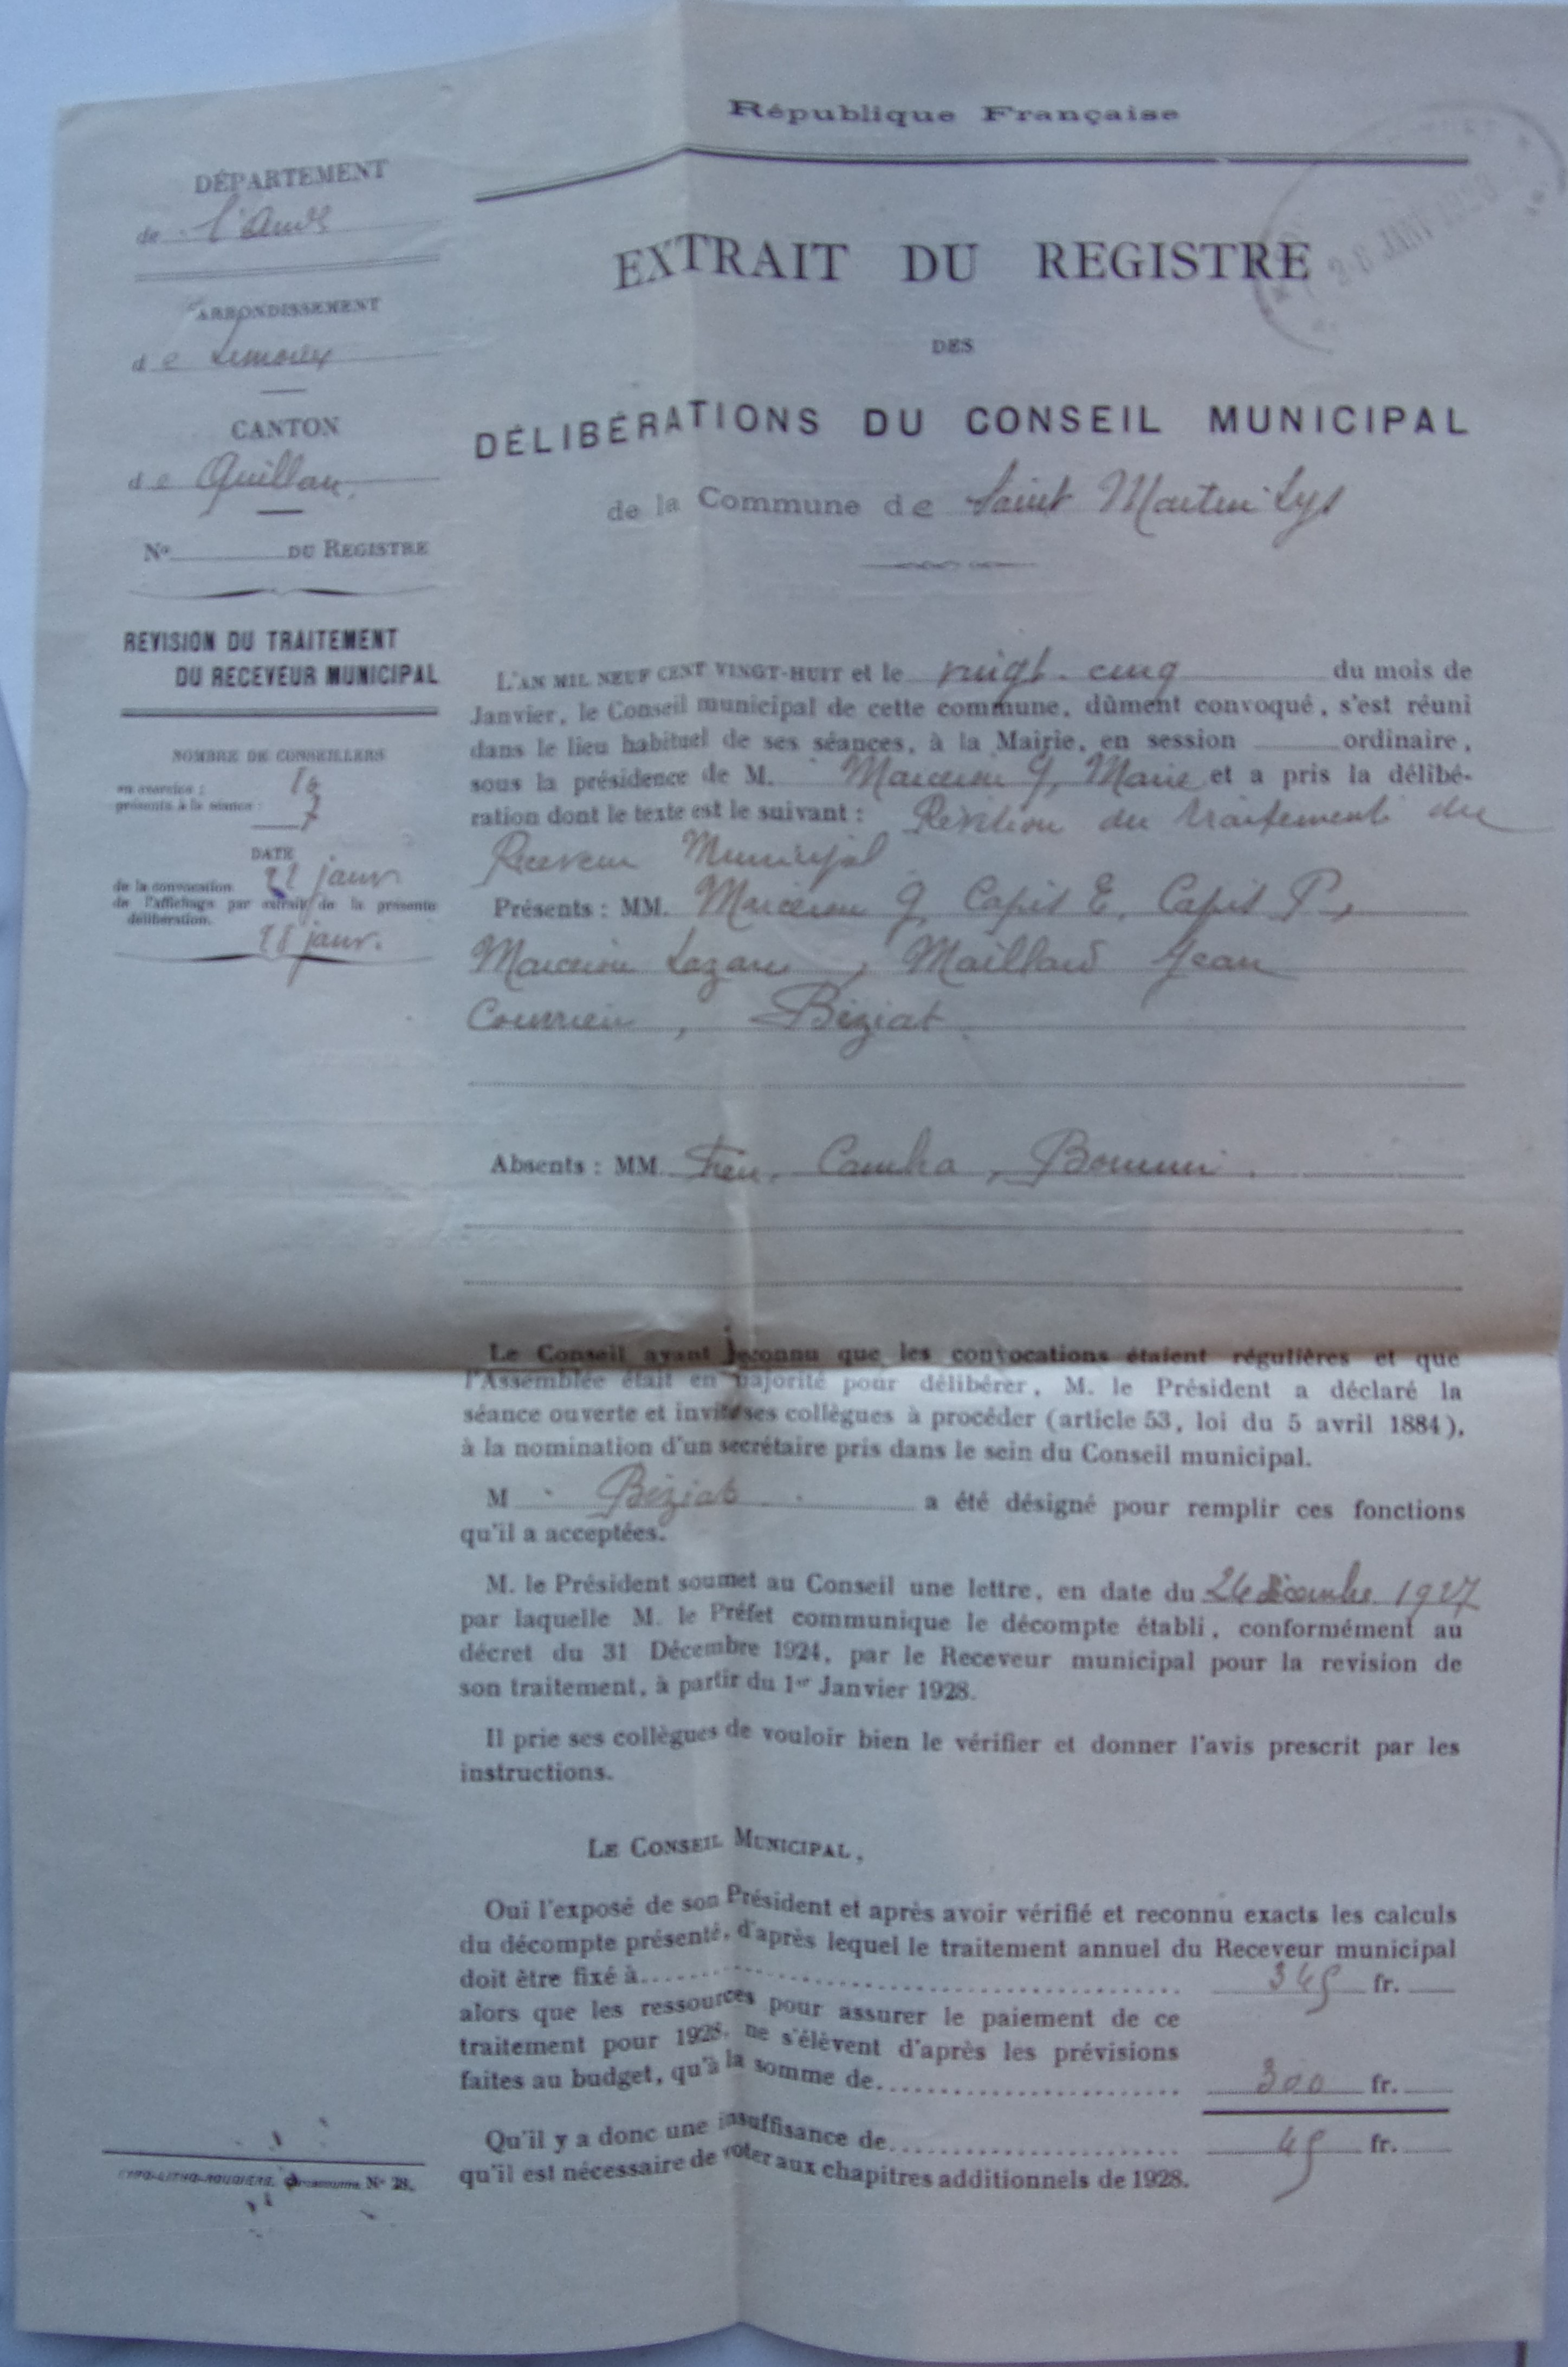 République Française
DÉPARTEMENT
de l'Aude
ARRONDISSEMENT
de Limoux
CANTON
de Quillan
No DU REGISTRE
REVISION DU TRAITEMENT
DU RECEVEUR MUNICIPAL
NOMBRE DE CONSEILLERS
en exercice : 10
présents à la séance : 7
DATE
de la convocation 21 janv
de l'affichage par extrait de la présente
délibération.
28 janv.
EXTRAIT DU REGISTRE
DES
DÉLIBÉRATIONS DU CONSEIL MUNICIPAL
de la Commune de Saint Martin Lys
L'AN MIL NEUF CENT VINGT-HUIT et le vingt-cinq du mois de
Janvier, le Conseil municipal de cette commune, dûment convoqué, s'est réuni
dans le lieu habituel de ses séances, à la Mairie, en session ordinaire,
sous la présidence de M. Marcerou J, Maire et a pris la délibé-
ration dont le texte est le suivant : Révision du traitement du
Receveur Municipal
Présents : MM. Marcerou J, Capit E, Capit P,
Marcerou Lazare, Maillard Jean
Courrieu, Béziat
Absents : MM. Bonnui.
Le Conseil ayant reconnu que les convocations étaient régulières et que
l'Assemblée était en majorité pour délibérer, M. le Président a déclaré la
séance ouverte et invité ses collègues à procéder (article 53, loi du 5 avril 1884),
à la nomination d'un secrétaire pris dans le sein du Conseil municipal.
M Béziat a été désigné pour remplir ces fonctions
qu'il a acceptées.
M. le Président soumet au Conseil une lettre, en date du 26 décembre 1927
par laquelle M. le Préfet communique le décompte établi, conformément au
décret du 31 Décembre 1924, par le Receveur municipal pour la revision de
son traitement, à partir du 1er Janvier 1928.
Il prie ses collègues de vouloir bien le vérifier et donner l'avis prescrit par les
instructions.
LE CONSEIL MUNICIPAL,
Oui l'exposé de son Président et après avoir vérifié et reconnu exacts les calculs
du décompte présenté, d'après lequel le traitement annuel du Receveur municipal
doit être fixé à 345 fr.
alors que les ressources pour assurer le paiement de ce
traitement pour 1928, ne s'élèvent d'après les prévisions
faites au budget, qu'à la somme de 300 fr.
Qu'il y a donc une insuffisance de 45 fr.
qu'il est nécessaire de voter aux chapitres additionnels de 1928.
No 28.